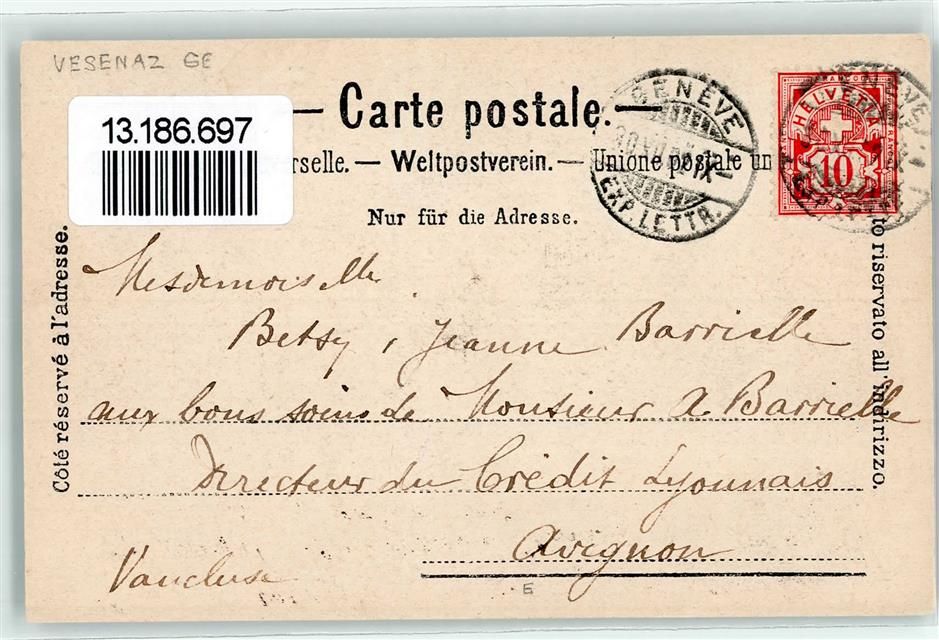 VESENAZ GE
13.186.697
— Carte postale. —
rselle. — Weltpostverein. — Unione postale un
Nur für die Adresse.
GENÈVE
EXP. LETTR.
HELVETIA
10
GENÈVE
Côté réservé à l'adresse.
to riservato all'indirizzo.
Mesdemoiselle
Betsy, Jeanne Barrielle
aux bons soins de Monsieur A Barrielle
Directeur du Crédit Lyonnais
Avignon
Vaucluse
E